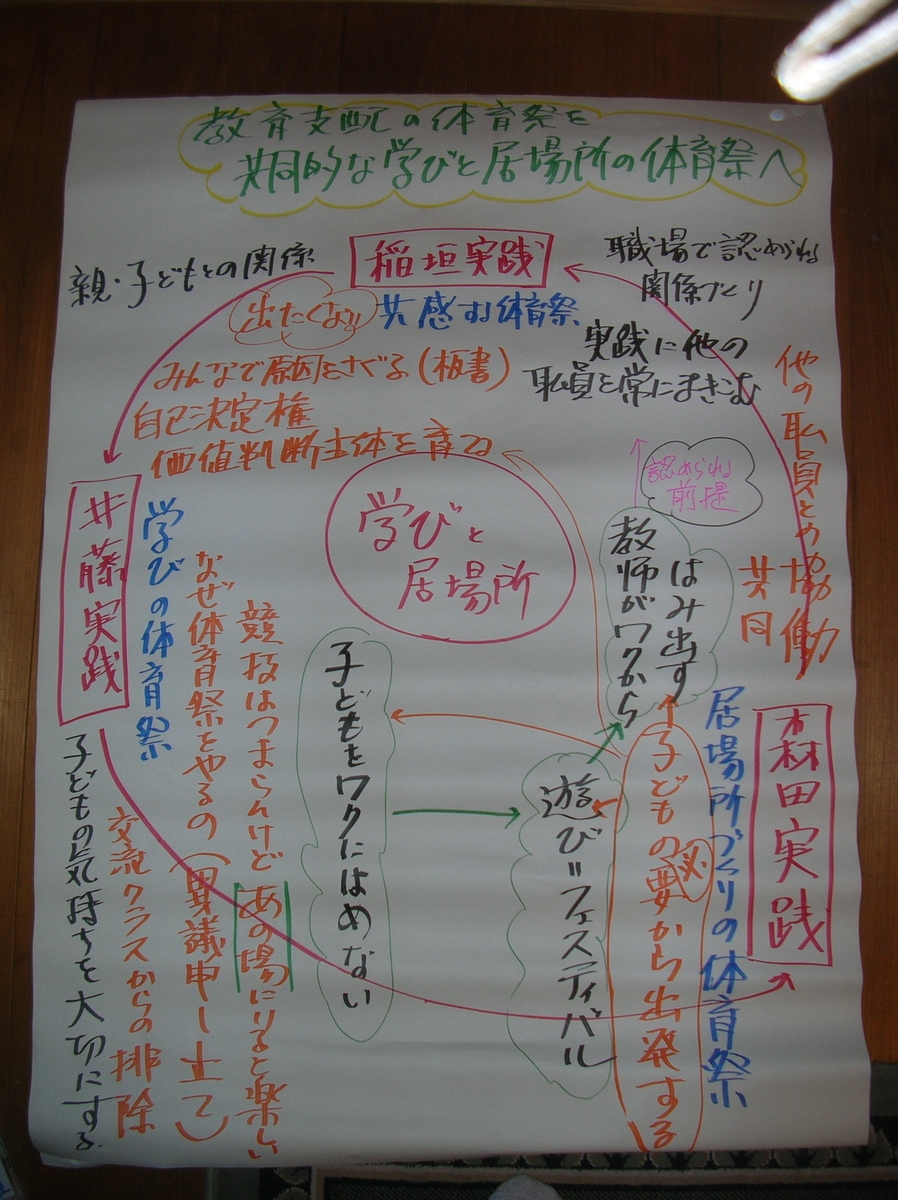 教育支配の体育祭を
共同的な学びと居場所の体育祭へ
親・子どもとの関係
稲垣実践
職場で認められる
関係づくり
出たくない
共感する体育祭
実践に他の
職員を常にまきこむ
みんなで原因をさぐる(板書)
自己決定権
価値判断主体を育てる
他の職員との協働
共同
認められる
前提
教師がワクから
はみ出す
学びと
居場所
井藤実践
学びの体育祭
なぜ体育祭をやるの(異議申し立て)
競技はつまらんけどあの場にいると楽しい
交流クラスからの排除
子どもの気持ちを大切にする
子どもをワクにはめない
遊び=フェスティバル
子どもの必要から出発する
居場所づくりの体育祭
森田実践